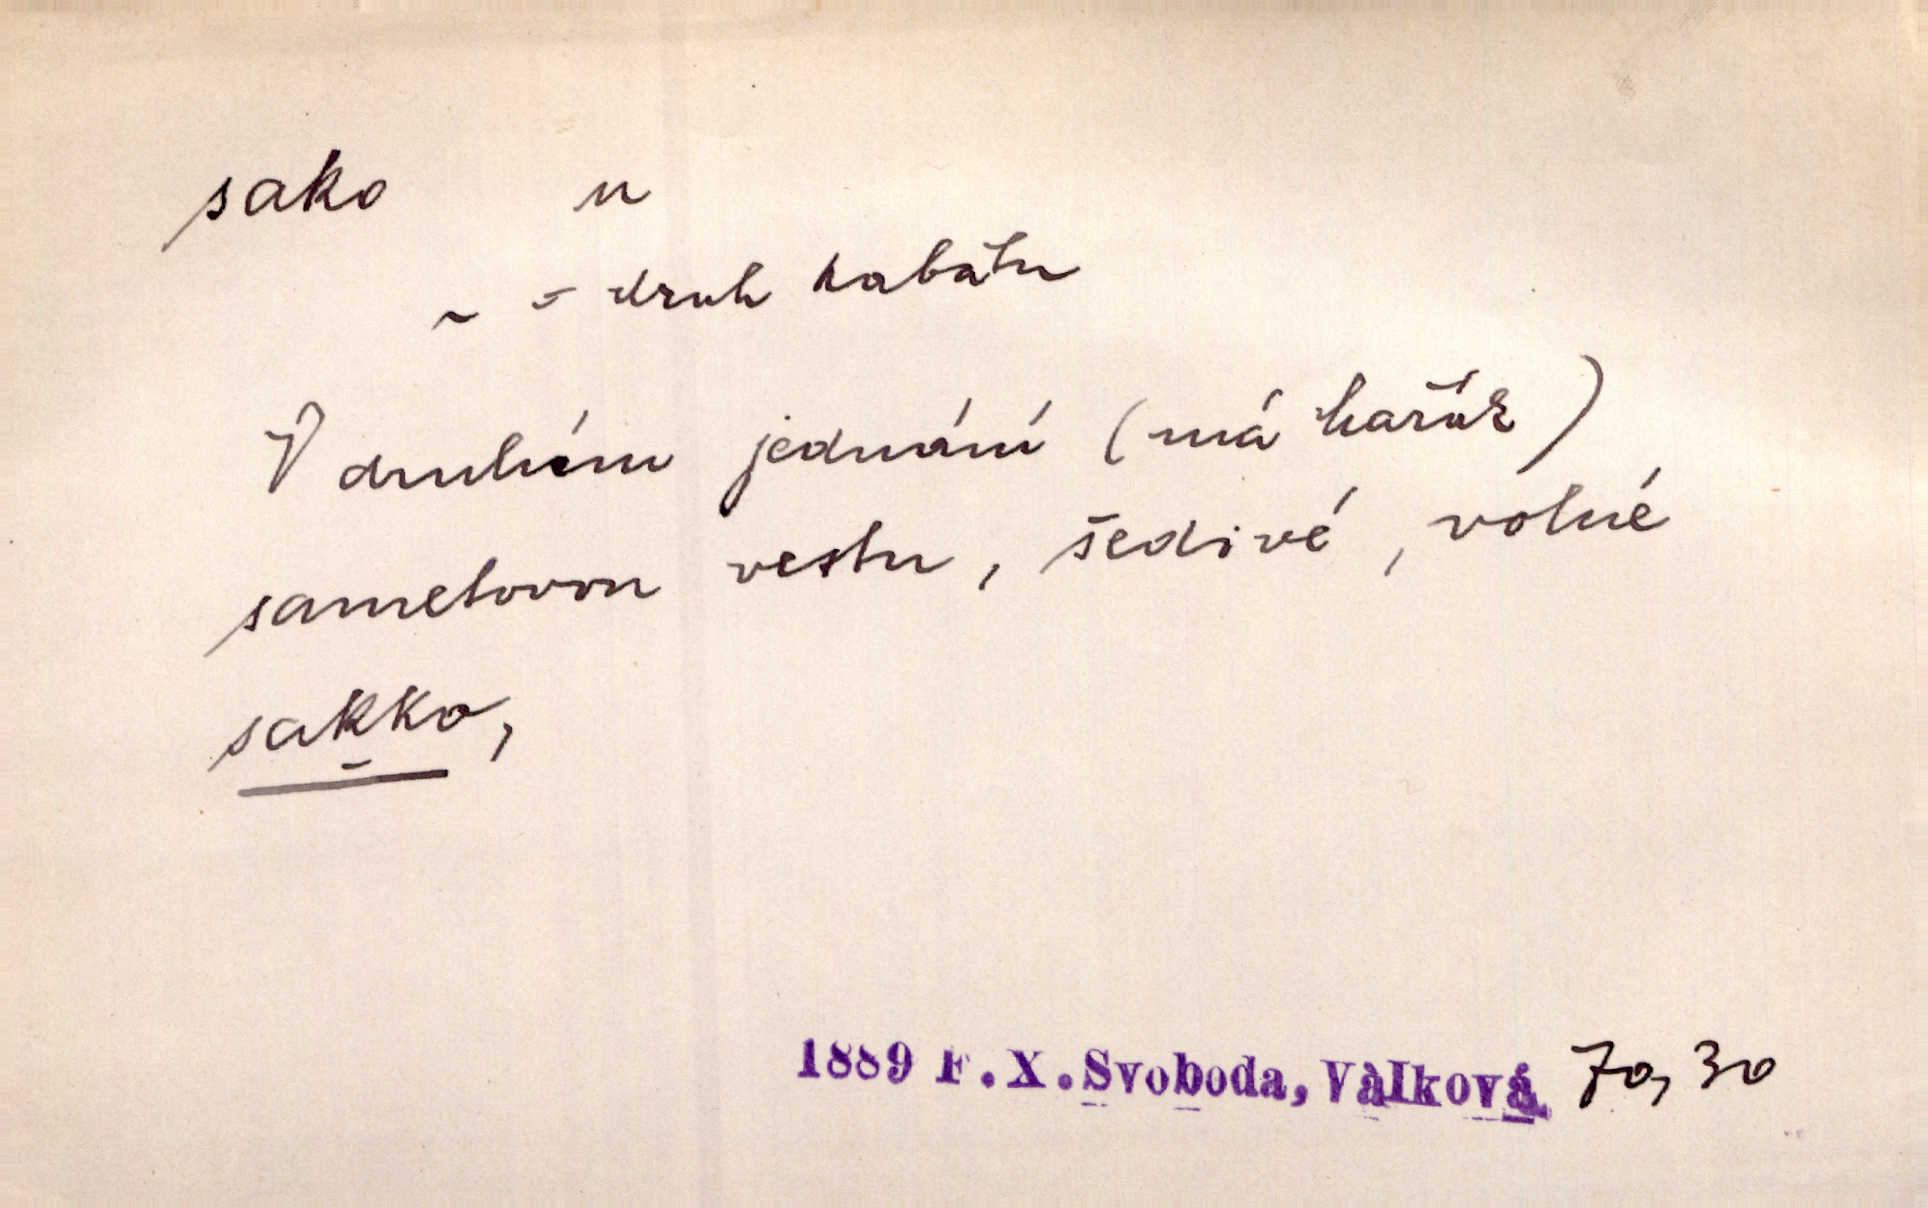 sako n
~ = druh kabátu
V druhém jednání (má
sametovou vestu, šedivé, volné
sakko,
1889 F. X. Svoboda, Válková 70, 30